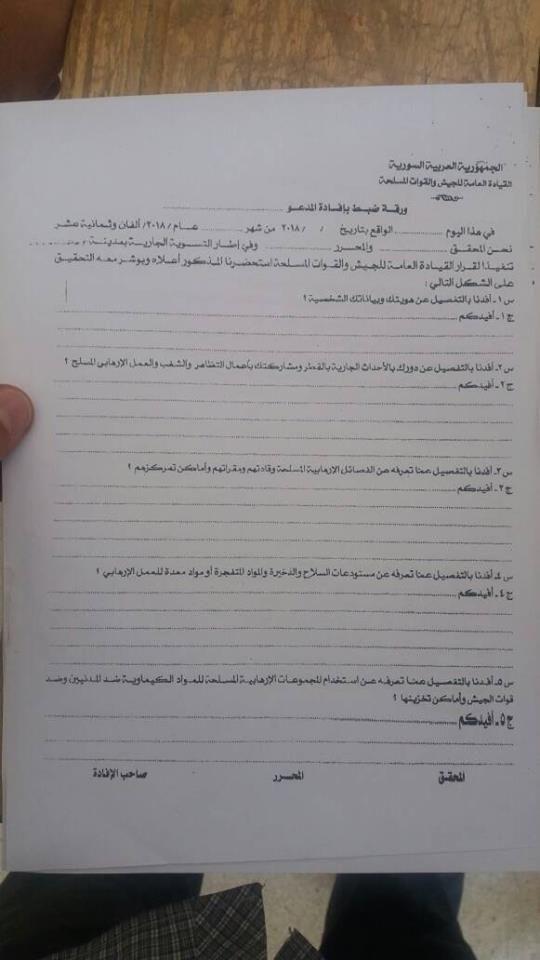 الجمهورية العربية السورية
القيادة العامة للجيش والقوات المسلحة
ورقة ضبط بإفادة المدعو ..........
في هذا اليوم .......... الواقع بتاريخ / / ٢٠١٨ من شهر .......... عـام /٢٠١٨/ ألفان وثمانية عشر
نحن المحقق .......... والمحرر .......... وفي إطار التسوية الجارية بمدينة ..........
تنفيذاً لقرار القيادة العامة للجيش والقوات المسلحة استحضرنا المذكور أعلاه ويوشر معه التحقيق
على الشكل التالي :
س١- أفدنا بالتفصيل عن هويتك وبياناتك الشخصية ؟
ج١- أفيدكم ..........
س٢- أفدنا بالتفصيل عن دورك بالأحداث الجارية بالقطر ومشاركتك بأعمال التظاهر والشغب والعمل الإرهابي المسلح ؟
ج٢- أفيدكم ..........
س٣- أفدنا بالتفصيل عمّا تعرفه عن الفصائل الإرهابية المسلحة وقادتهم ومقراتهم وأماكن تمركزهم ؟
ج٣- أفيدكم ..........
س٤- أفدنا بالتفصيل عمّا تعرفه عن مستودعات السلاح والذخيرة والمواد المتفجرة أو مواد معدة للعمل الإرهابي ؟
ج٤- أفيدكم ..........
س٥- أفدنا بالتفصيل عمّا تعرفه عن استخدام المجموعات الإرهابية المسلحة للمواد الكيماوية ضد المدنيين وضد
قوات الجيش وأماكن تخزينها ؟
ج٥- أفيدكم ..........
المحقق المحرر صاحب الإفادة